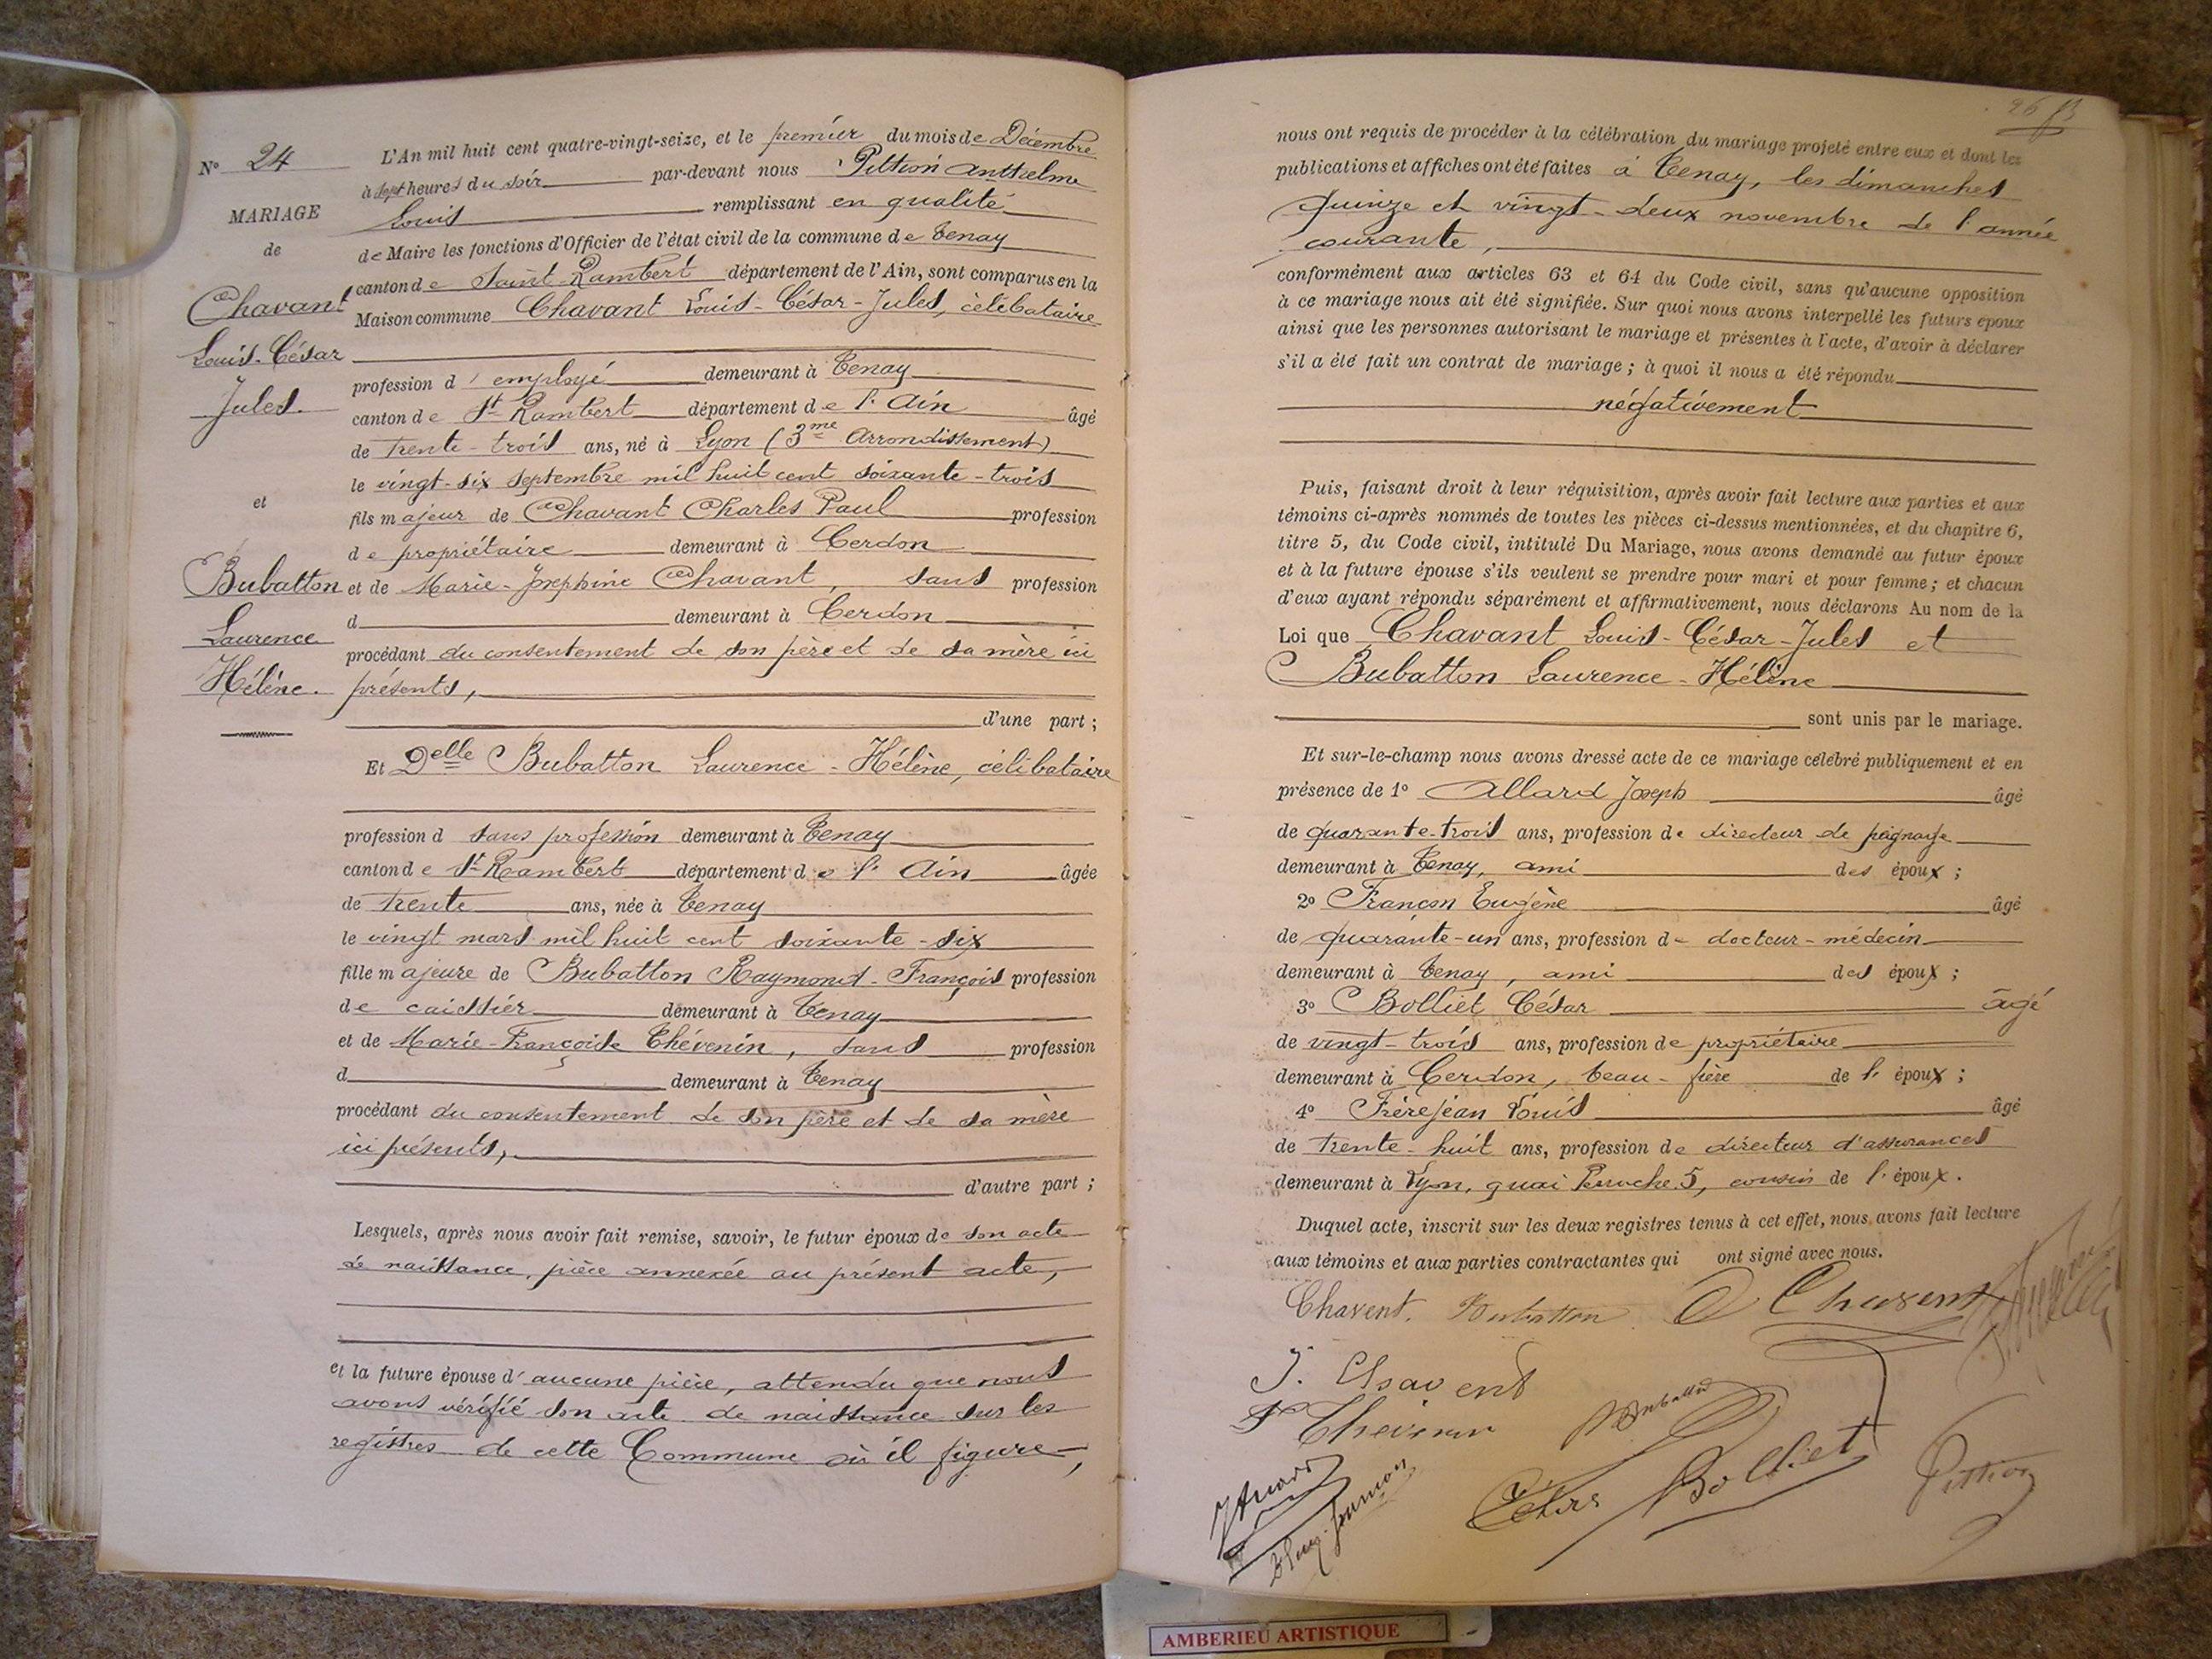 N° 24
MARIAGE
de
Chavant
Louis-César
Jules.
et
Bubatton
Laurence
Hélène.
L'An mil huit cent quatre-vingt-seize, et le premier du mois de Décembre
à sept heures du soir par-devant nous Pittion Anthelme
Louis remplissant en qualité
de Maire les fonctions d'Officier de l'état civil de la commune de Tenay
canton de Saint-Rambert département de l'Ain, sont comparus en la
Maison commune Chavant Louis-César-Jules, célibataire
profession d'employé demeurant à Tenay
canton de St Rambert département de l'Ain âgé
de trente-trois ans, né à Lyon (3me Arrondissement)
le vingt-six septembre mil huit cent soixante-trois
fils majeur de Chavant Charles Paul profession
de propriétaire demeurant à Cerdon
et de Marie-Josephine Chavant, sans profession
d demeurant à Cerdon
procédant du consentement de son père et de sa mère ici
présents,
d'une part ;
Et Delle Bubatton Laurence-Hélène, célibataire
profession d sans profession demeurant à Tenay
canton de St Rambert département de l'Ain âgée
de trente ans, née à Tenay
le vingt mars mil huit cent soixante-six
fille majeure de Bubatton Raymond-François profession
de caissier demeurant à Tenay
et de Marie-Françoise Thévenin, sans profession
d demeurant à Tenay
procédant du consentement de son père et de sa mère
ici présents,
d'autre part ;
Lesquels, après nous avoir fait remise, savoir, le futur époux de son acte
de naissance, pièce annexée au présent acte,
et la future épouse d'aucune pièce, attendu que nous
avons vérifié son acte de naissance sur les
registres de cette Commune où il figure,
nous ont requis de procéder à la célébration du mariage projeté entre eux et dont les
publications et affiches ont été faites à Tenay, les dimanches
quinze et vingt-deux novembre de l'année
courante,
conformément aux articles 63 et 64 du Code civil, sans qu'aucune opposition
à ce mariage nous ait été signifiée. Sur quoi nous avons interpellé les futurs époux
ainsi que les personnes autorisant le mariage et présentes à l'acte, d'avoir à déclarer
s'il a été fait un contrat de mariage ; à quoi il nous a été répondu
négativement
Puis, faisant droit à leur réquisition, après avoir fait lecture aux parties et aux
témoins ci-après nommés de toutes les pièces ci-dessus mentionnées, et du chapitre 6,
titre 5, du Code civil, intitulé Du Mariage, nous avons demandé au futur époux
et à la future épouse s'ils veulent se prendre pour mari et pour femme ; et chacun
d'eux ayant répondu séparément et affirmativement, nous déclarons Au nom de la
Loi que Chavant Louis-César-Jules et
Bubatton Laurence-Hélène
sont unis par le mariage.
Et sur-le-champ nous avons dressé acte de ce mariage célébré publiquement et en
présence de 1° Allard Joseph âgé
de quarante-trois ans, profession de directeur de peignage
demeurant à Tenay, ami des époux ;
2° Françon Eugène âgé
de quarante-un ans, profession de docteur-médecin
demeurant à Tenay, ami des époux ;
3° Bolliet César âgé
de vingt-trois ans, profession de propriétaire
demeurant à Cerdon, beau-frère de l'époux ;
4° Frèrejean Louis âgé
de trente-huit ans, profession de directeur d'assurances
demeurant à Lyon, quai Perrache 5, cousin de l'époux.
Duquel acte, inscrit sur les deux registres tenus à cet effet, nous avons fait lecture
aux témoins et aux parties contractantes qui ont signé avec nous.
Chavent. Bubatton Chavent
J. Chavent
Bubatton
Bolliet
Pittion
AMBERIEU ARTISTIQUE